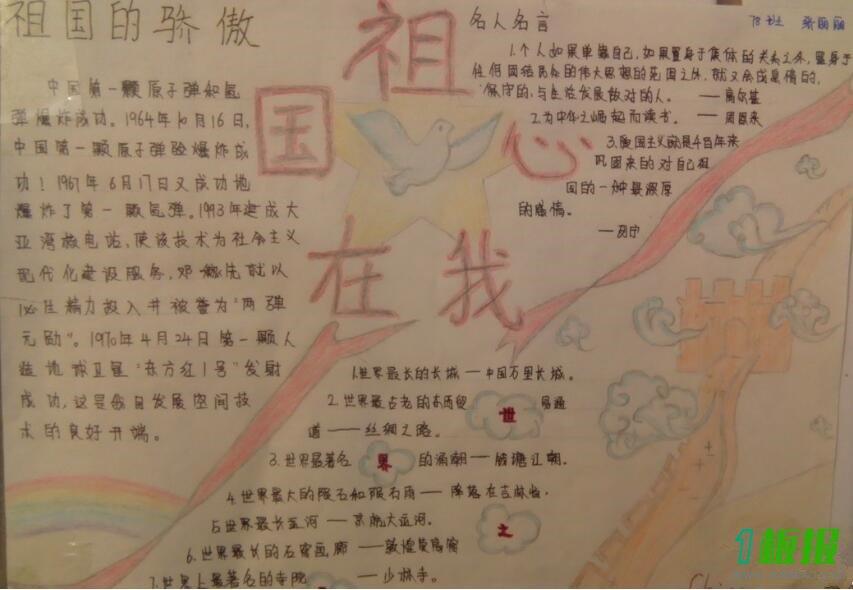 祖国的骄傲
中国第一颗原子弹和氢
弹爆炸成功。1964年10月16日,
中国第一颗原子弹验爆炸成
功!1967年6月17日又成功地
爆炸了第一颗氢弹。1993年建成大
亚湾核电站,使该技术为社会主义
现代化建设服务,邓稼先就以
毕生精力投入并被誉为“两弹
元勋”。1970年4月24日第一颗人
造地球卫星“东方红1号”发射
成功,这是我国发展空间技
术的良好开端。
祖国在我心
名人名言
1.个人如果单靠自己,如果置身于集体的关系之外,置身于
任何团结民众的伟大思想的范围之外,就又会成是惰的,
保守的,与生活发展敌对的人。——高尔基
2.为中华之崛起而读书。——周恩来
3.爱国主义就是千百年来
巩固来的对自己祖
国的一种最深厚
的感情。
—列宁
1.世界最长的长城—中国万里长城。
2.世界最古老的东西贸易通
道——丝绸之路。
3.世界最著名的涌潮——钱塘江潮。
4.世界最大的陨石和陨石雨——降落在吉林省。
5.世界最长运河——京杭大运河。
6.世界最长的石窟画廊——敦煌莫高窟
7.世界上最著名的寺院——少林寺。
世
界
之
China
1板报